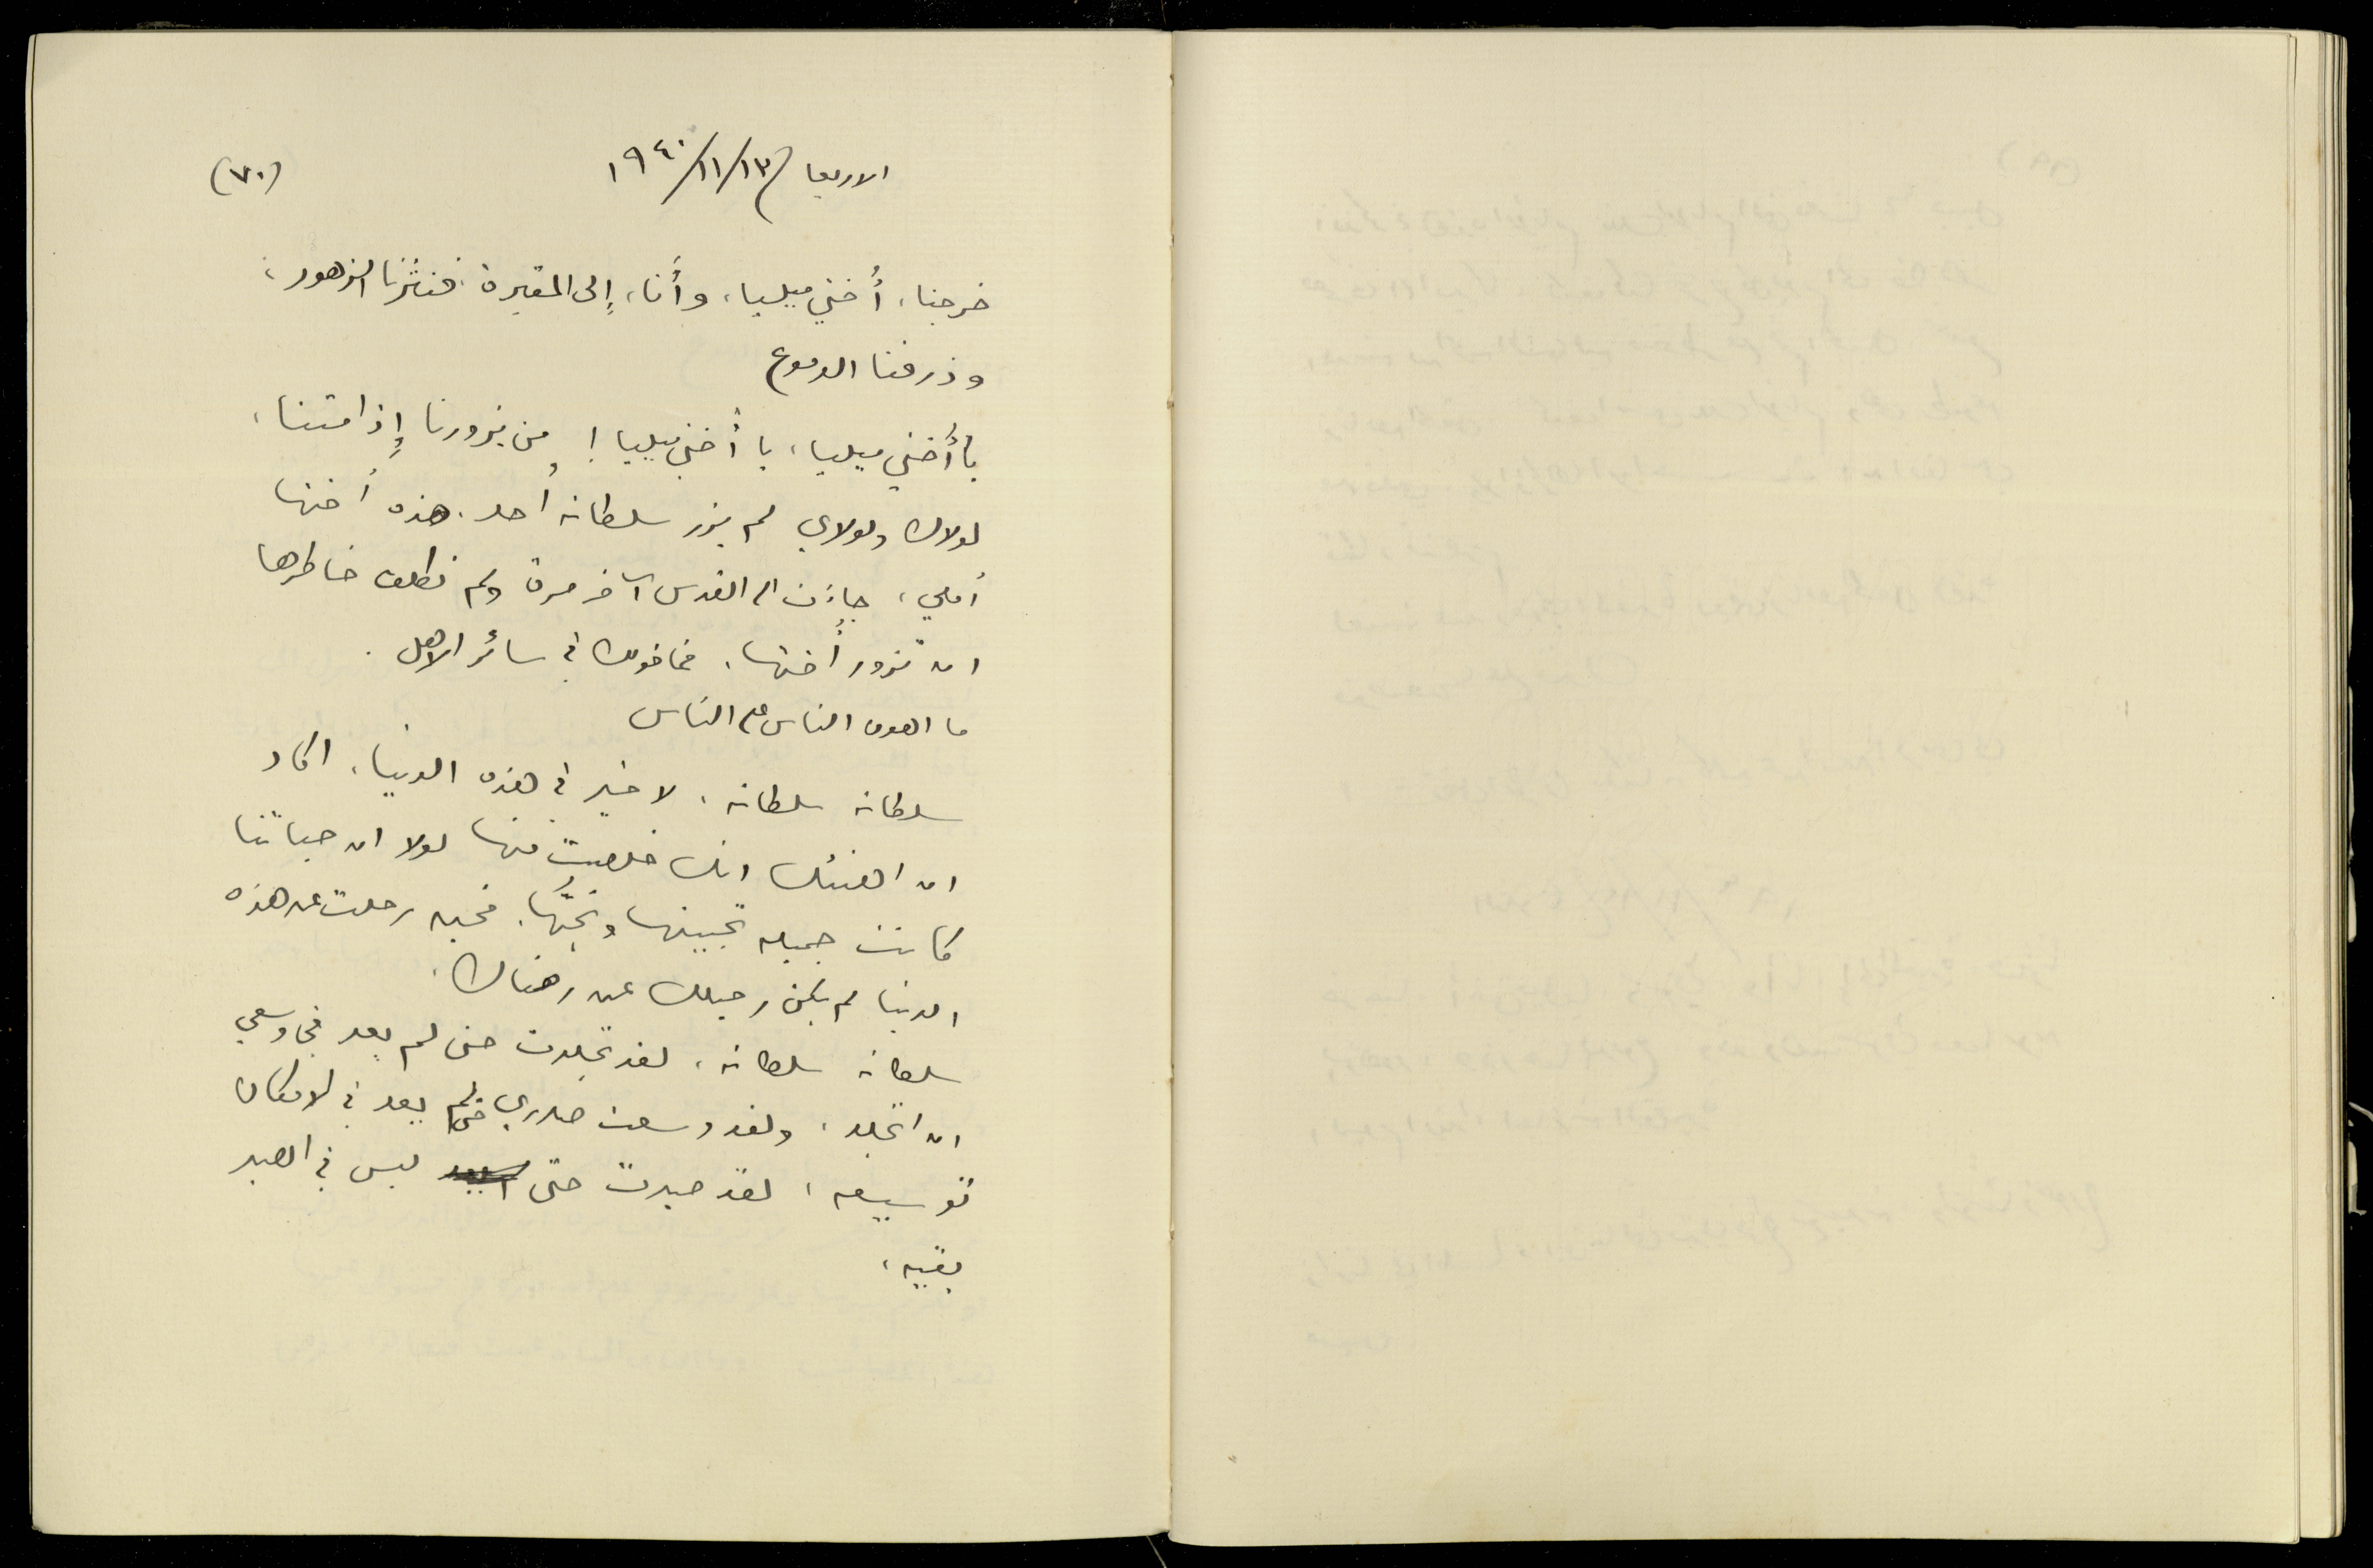 الاربعا ١٣/١١/١٩٤٠
(٧٠)
خرجنا، أُختي ميليا، وأَنا، إِلى المقبرة. فنثرنا الزهور،
وذرفنا الدموع
يا أُختي ميليا، يا أُختي ميليا! من يزورنا إِذا متنا،
لولاك ولولاي لم يزر سلطانه أحد. هذه أختها
أملي، جاءت الى القدس آخر مرة ولم تكلف خاطرها
ان تزور أُختها. فما قولك في سائر الاهل.
ما اهون الناس على الناس
سلطانه سلطانه، لا خير في هذه الدنيا، اكاد
ان اهنئك انك خلصت منها لولا ان حياتنا
كانت جميله تحبينها ونحبُّها. فحين رحلت عن هذه
الدنيا لم يكن رحيلك عن رضاك.
سلطانه سلطانه، لقد تجلدت حتى لم يعد في وسعي
ان اتجلد، ولقد وسعت صدري حتى لم يعد في الامكان
توسيعه، لقد صبرت حتى ليس في الصبر
بقيه،